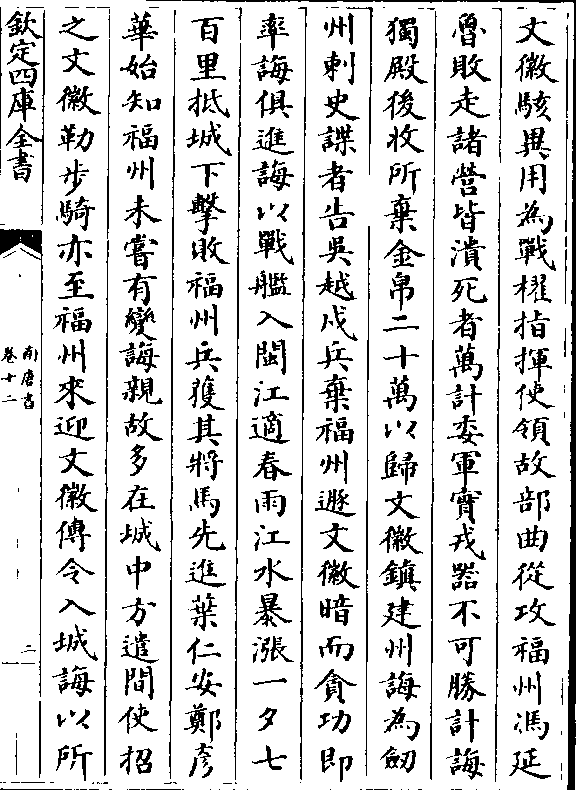 文徽駭異用為戰櫂指揮使領故部曲從攻福州馮延
魯敗走諸營皆潰死者萬計委軍實戎器不可勝計誨
獨殿後收所棄金帛二十萬以歸文徽鎮建州誨為劒
州刺史諜者告吳越戍兵棄福州遯文徽暗而貪功即
率誨俱進誨以戰艦入閩江適春雨江水暴漲一夕七
百里抵城下擊敗福州兵獲其將馬先進葉仁安鄭彥
華始知福州未嘗有變誨親故多在城中方遣間使招
之文徽勒步騎亦至福州來迎文徽傳令入城誨以所
欽定四庫全書
南唐書
卷十二
二